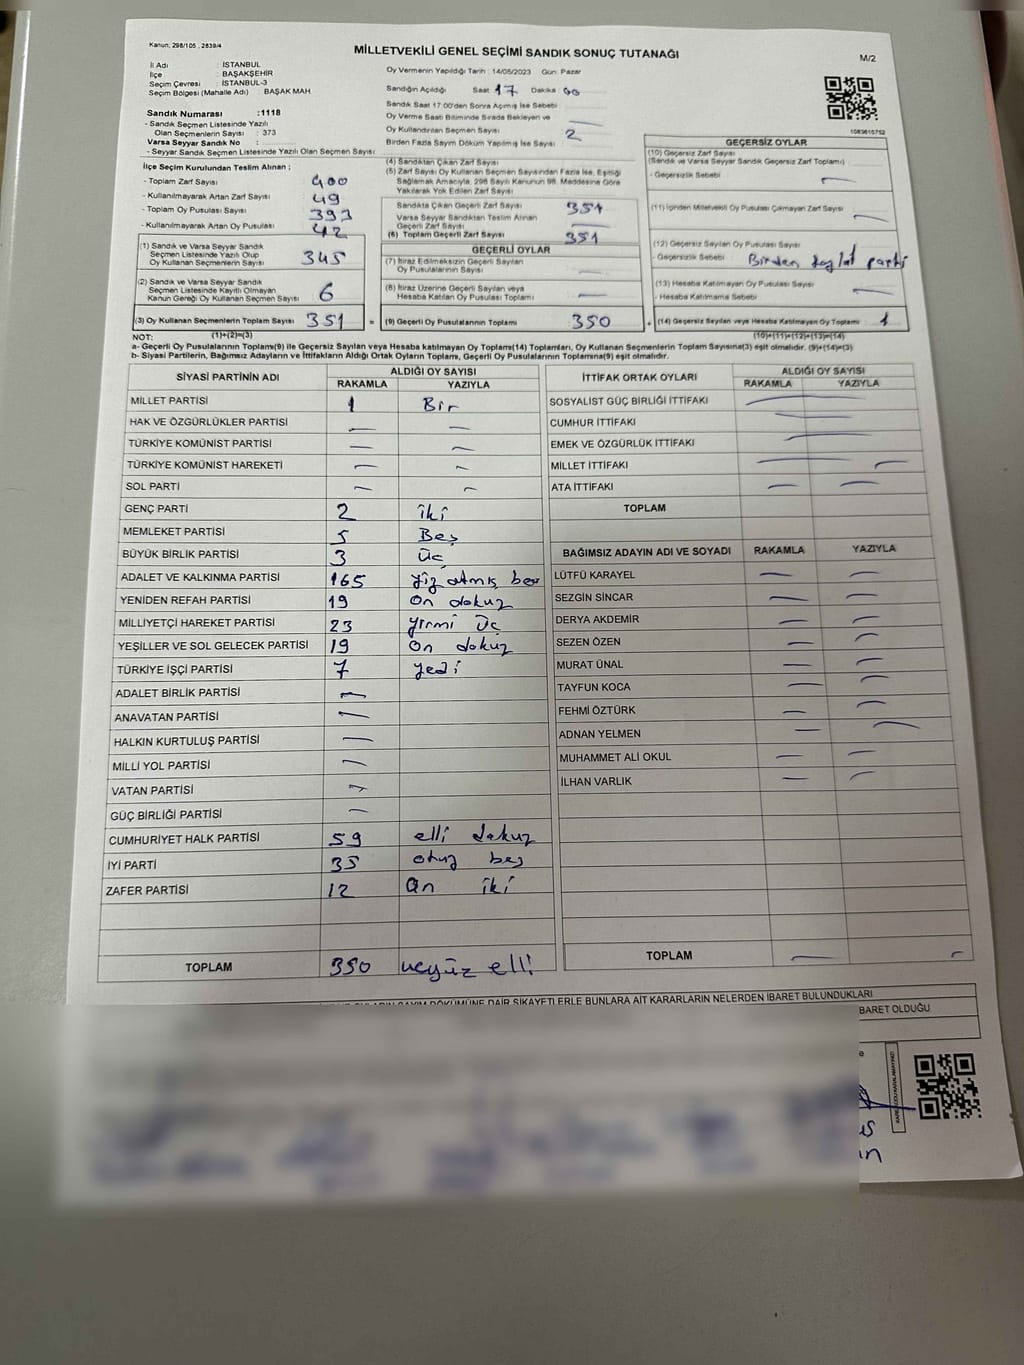 Kanun; 298/105 , 2839/4
MİLLETVEKİLİ GENEL SEÇİMİ SANDIK SONUÇ TUTANAĞI
M/2
İl Adı : İSTANBUL
İlçe : BAŞAKŞEHİR
Seçim Çevresi : İSTANBUL-3
Seçim Bölgesi (Mahalle Adı) : BAŞAK MAH
Sandık Numarası :1118
- Sandık Seçmen Listesinde Yazılı
Olan Seçmenlerin Sayısı : 373
Varsa Seyyar Sandık No :
- Seyyar Sandık Seçmen Listesinde Yazılı Olan Seçmen Sayısı:
İlçe Seçim Kurulundan Teslim Alınan ;
- Toplam Zarf Sayısı 400
- Kullanılmayarak Artan Zarf Sayısı 49
- Toplam Oy Pusulası Sayısı 393
- Kullanılmayarak Artan Oy Pusulası Sayısı 42
(1) Sandık ve Varsa Seyyar Sandık
Seçmen Listesinde Yazılı Olup
Oy Kullanan Seçmenlerin Sayısı 345
(2) Sandık ve Varsa Seyyar Sandık
Seçmen Listesinde Kayıtlı Olmayan
Kanun Gereği Oy Kullanan Seçmen Sayısı 6
(3) Oy Kullanan Seçmenlerin Toplam Sayısı 351 =
(1)+(2)=(3)
Oy Vermenin Yapıldığı Tarih : 14/05/2023 Gün: Pazar
Sandığın Açıldığı Saat 17 Dakika 00
Sandık Saat 17:00'den Sonra Açılmış İse Sebebi
Oy Verme Saati Bitiminde Sırada Bekleyen ve
Oy Kullandırılan Seçmen Sayısı 2
Birden Fazla Sayım Döküm Yapılmış İse Sayısı
(4) Sandıktan Çıkan Zarf Sayısı
(5) Zarf Sayısı Oy Kullanan Seçmen Sayısından Fazla İse, Eşitliği
Sağlamak Amacıyla, 298 Sayılı Kanunun 98. Maddesine Göre
Yakılarak Yok Edilen Zarf Sayısı
Sandıkta Çıkan Geçerli Zarf Sayısı 351
Varsa Seyyar Sandıktan Teslim Alınan
Geçerli Zarf Sayısı
(6) Toplam Geçerli Zarf Sayısı 351
GEÇERLİ OYLAR
(7) İtiraz Edilmeksizin Geçerli Sayılan
Oy Pusulalarının Sayısı
(8) İtiraz Üzerine Geçerli Sayılan veya
Hesaba Katılan Oy Pusulası Toplamı
(9) Geçerli Oy Pusulalarının Toplamı 350 +
1083615752
GEÇERSİZ OYLAR
(10) Geçersiz Zarf Sayısı
(Sandık ve Varsa Seyyar Sandık Geçersiz Zarf Toplamı)
- Geçersizlik Sebebi
(11) İçinden Milletvekili Oy Pusulası Çıkmayan Zarf Sayısı
(12) Geçersiz Sayılan Oy Pusulası Sayısı
- Geçersizlik Sebebi Birden parti
(13) Hesaba Katılmayan Oy Pusulası Sayısı
- Hesaba Katılmama Sebebi
(14) Geçersiz Sayılan veya Hesaba Katılmayan Oy Toplamı 1
(10)+(11)+(12)+(13)=(14)
NOT:
a- Geçerli Oy Pusulalarının Toplamı(9) ile Geçersiz Sayılan veya Hesaba katılmayan Oy Toplamı(14) Toplamları, Oy Kullanan Seçmenlerin Toplam Sayısına(3) eşit olmalıdır. (9)+(14)=(3)
b- Siyasi Partilerin, Bağımsız Adayların ve İttifakların Aldığı Ortak Oyların Toplamı, Geçerli Oy Pusulalarının Toplamına(9) eşit olmalıdır.
SİYASİ PARTİNİN ADI ALDIĞI OY SAYISI
RAKAMLA YAZIYLA
MİLLET PARTİSİ 1 Bir
HAK VE ÖZGÜRLÜKLER PARTİSİ
TÜRKİYE KOMÜNİST PARTİSİ
TÜRKİYE KOMÜNİST HAREKETİ
SOL PARTİ
GENÇ PARTİ 2 iki
MEMLEKET PARTİSİ 5 Beş
BÜYÜK BİRLİK PARTİSİ 3 üç
ADALET VE KALKINMA PARTİSİ 165 yüz atmış beş
YENİDEN REFAH PARTİSİ 19 on dokuz
MİLLİYETÇİ HAREKET PARTİSİ 23 yirmi üç
YEŞİLLER VE SOL GELECEK PARTİSİ 19 on dokuz
TÜRKİYE İŞÇİ PARTİSİ 7 yedi
ADALET BİRLİK PARTİSİ
ANAVATAN PARTİSİ
HALKIN KURTULUŞ PARTİSİ
MİLLİ YOL PARTİSİ
VATAN PARTİSİ
GÜÇ BİRLİĞİ PARTİSİ
CUMHURİYET HALK PARTİSİ 59 elli dokuz
İYİ PARTİ 35 otuz beş
ZAFER PARTİSİ 12 on iki
TOPLAM 350 üçyüz elli
İTTİFAK ORTAK OYLARI ALDIĞI OY SAYISI
RAKAMLA YAZIYLA
SOSYALİST GÜÇ BİRLİĞİ İTTİFAKI
CUMHUR İTTİFAKI
EMEK VE ÖZGÜRLÜK İTTİFAKI
MİLLET İTTİFAKI
ATA İTTİFAKI
TOPLAM
BAĞIMSIZ ADAYIN ADI VE SOYADI RAKAMLA YAZIYLA
LÜTFÜ KARAYEL
SEZGİN SİNCAR
DERYA AKDEMİR
SEZEN ÖZEN
MURAT ÜNAL
TAYFUN KOCA
FEHMİ ÖZTÜRK
ADNAN YELMEN
MUHAMMET ALİ OKUL
İLHAN VARLIK
TOPLAM
DÖKÜMÜNE DAİR ŞİKAYETLERLE BUNLARA AİT KARARLARIN NELERDEN İBARET BULUNDUKLARI
BARET OLDUĞU